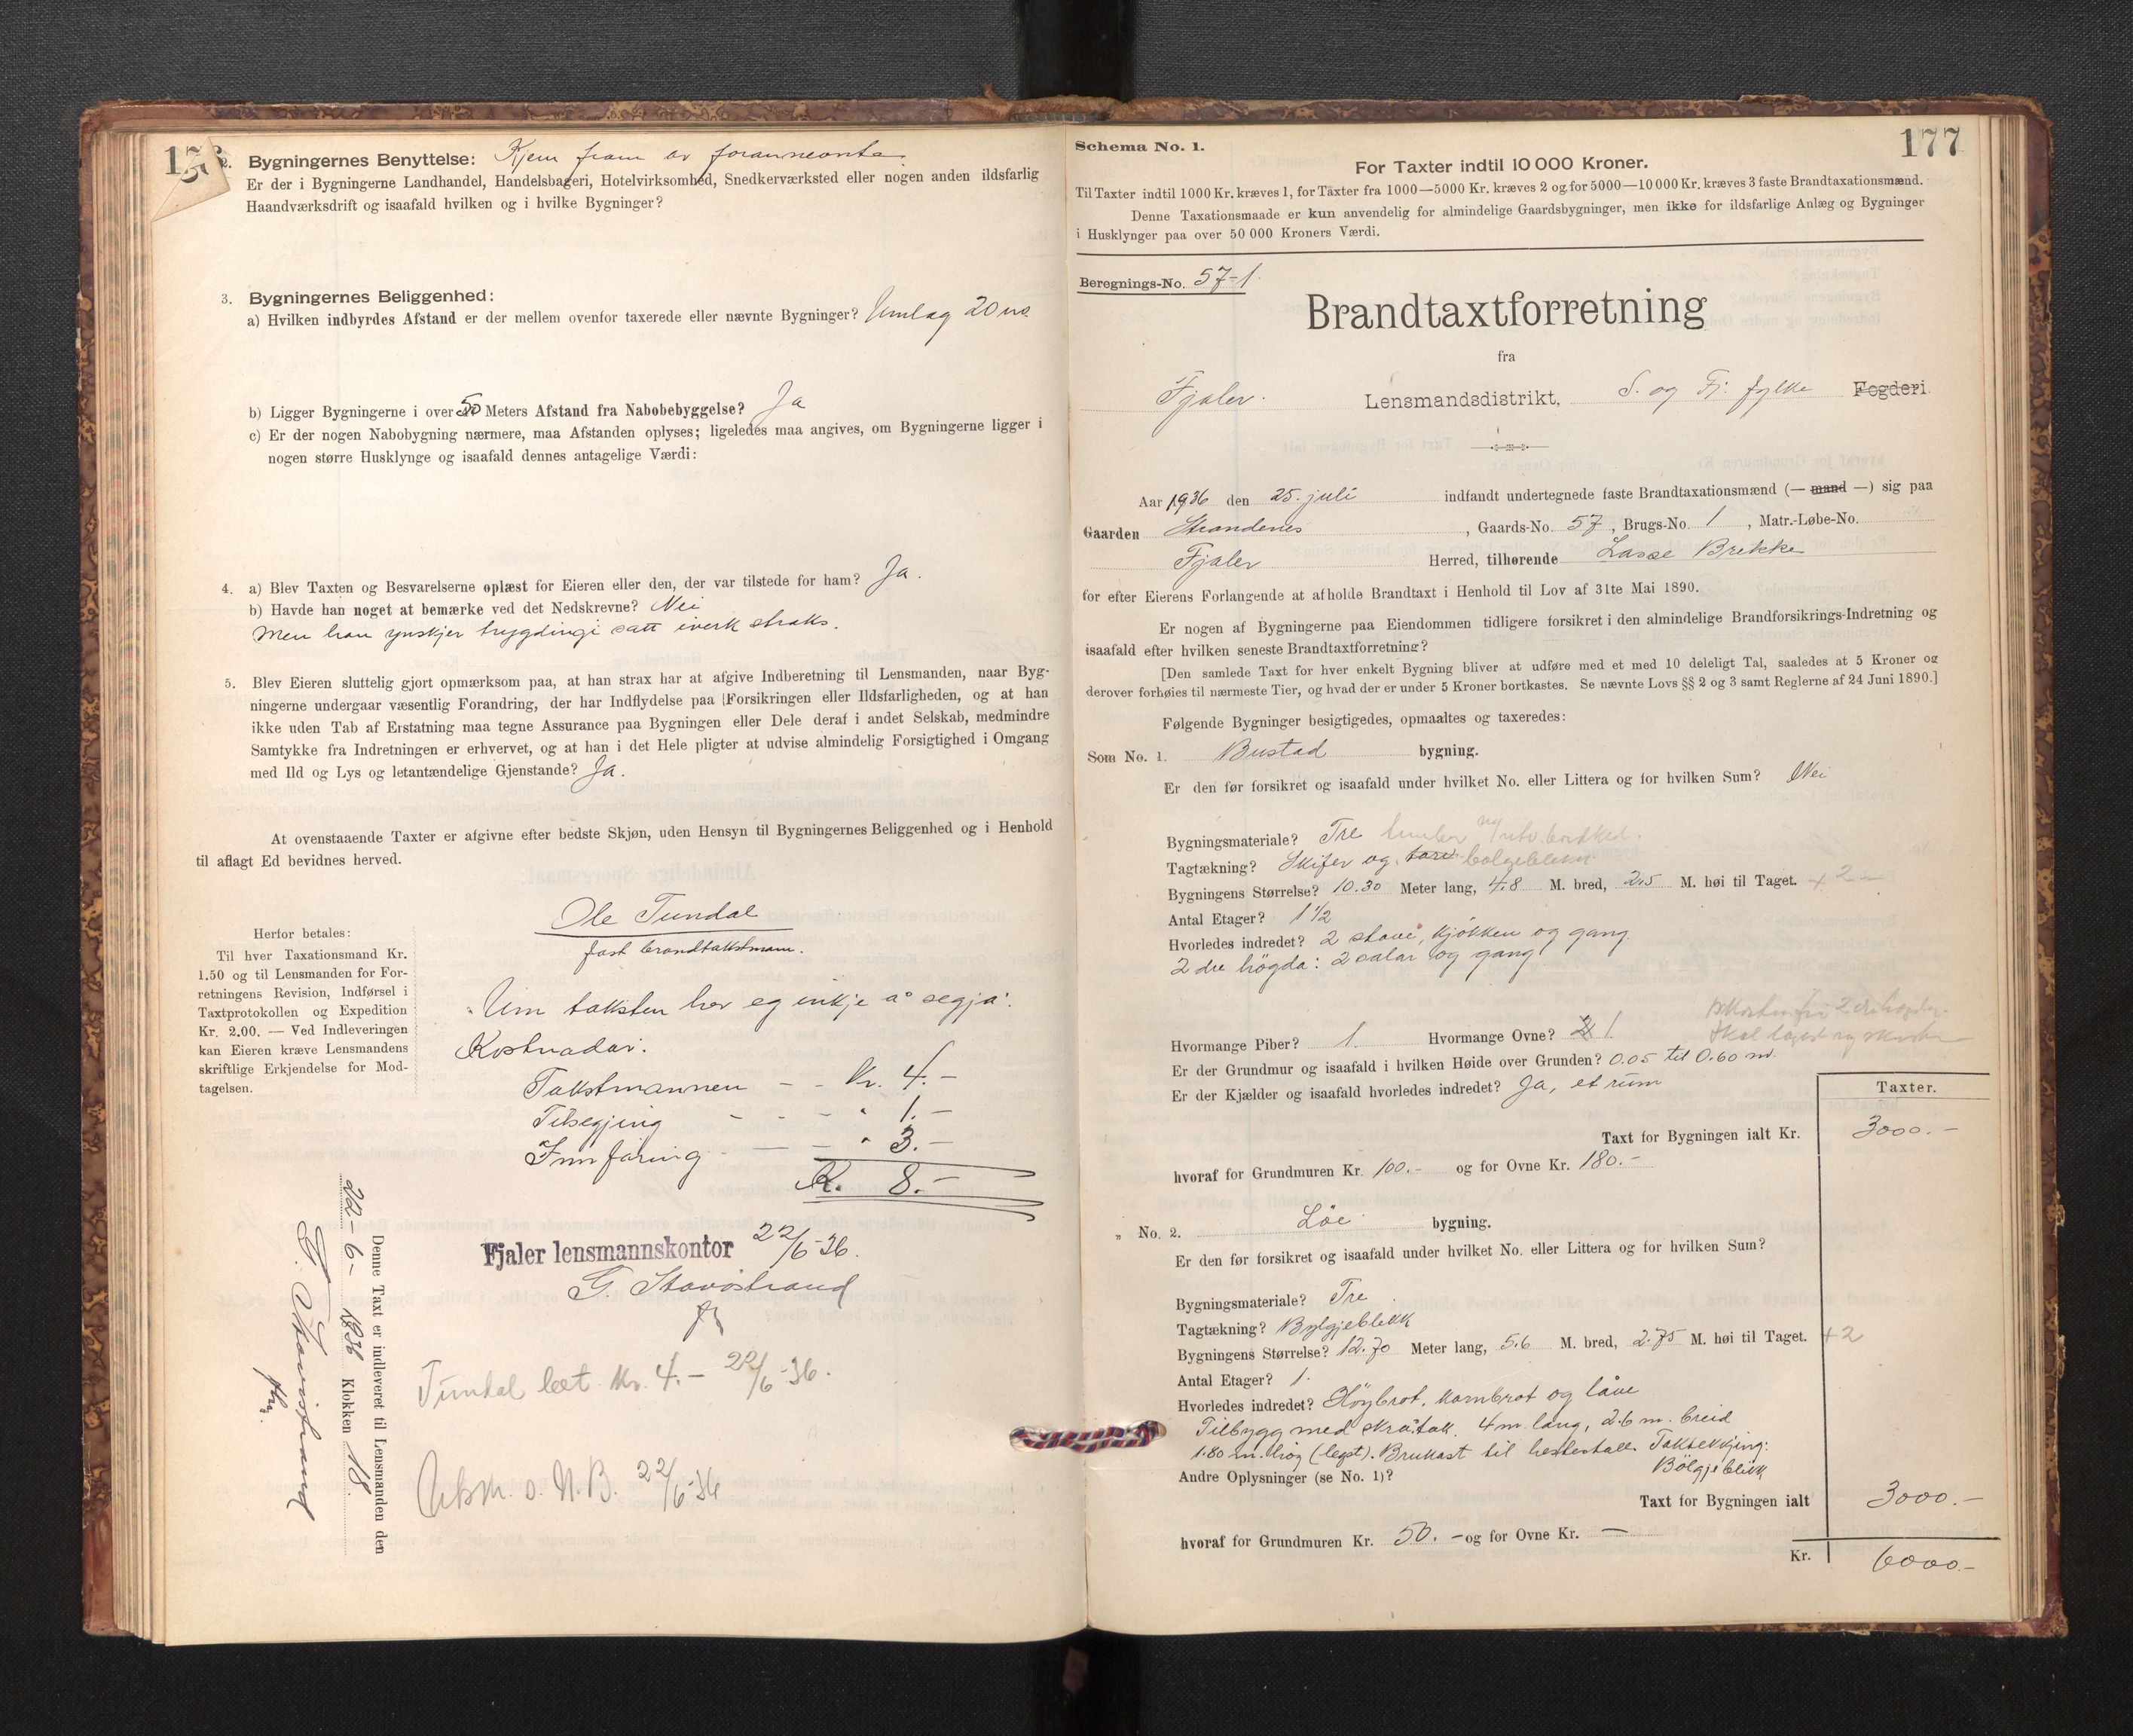 176
2. Bygningernes Benyttelse: Kjem fram av foranneonta.
Er der i Bygningerne Landhandel, Handelsbageri, Hotelvirksomhed, Snedkerværksted eller nogen anden ildsfarlig
Haandværksdrift og isaafald hvilken og i hvilke Bygninger?
3. Bygningernes Beliggenhed:
a) Hvilken indbyrdes Afstand er der mellem ovenfor taxerede eller nævnte Bygninger? Umlag 20 m.
b) Ligger Bygningerne i over 50 Meters Afstand fra Nabobebyggelse? Ja
c) Er der nogen Nabobygning nærmere, maa Afstanden oplyses; ligeledes maa angives, om Bygningerne ligger i
nogen større Husklynge og isaafald dennes antagelige Værdi:
4. a) Blev Taxten og Besvarelserne oplæst for Eieren eller den, der var tilstede for ham? Ja.
b) Havde han noget at bemærke ved det Nedskrevne? Nei
Men han ynskjer trygdingi satt iverk straks.
5. Blev Eieren sluttelig gjort opmærksom paa, at han strax har at afgive Indberetning til Lensmanden, naar Byg-
ningerne undergaar væsentlig Forandring, der har Indflydelse paa Forsikringen eller Ildsfarligheden, og at han
ikke uden Tab af Erstatning maa tegne Assurance paa Bygningen eller Dele deraf i andet Selskab, medmindre
Samtykke fra Indretningen er erhvervet, og at han i det Hele pligter at udvise almindelig Forsigtighed i Omgang
med Ild og Lys og letantændelige Gjenstande? Ja.
At ovenstaaende Taxter er afgivne efter bedste Skjøn, uden Hensyn til Bygningernes Beliggenhed og i Henhold
til aflagt Ed bevidnes herved.
Ole Tundal
fast brandtakstmann.
Herfor betales:
Til hver Taxationsmand Kr.
1.50 og til Lensmanden for For-
retningens Revision, Indførsel i
Taxtprotokollen og Expedition
Kr. 2.00. — Ved Indleveringen
kan Eieren kræve Lensmandens
skriftlige Erkjendelse for Mod-
tagelsen.
Um taksten hev eg inkje å segja.
Kostnadar:
Takstmannen - - Kr. 4.-
Tilsegjing - - - " 1.-
Innføring - - " 3.-
Kr. 8.-
Fjaler lensmannskontor 22/6-36.
G. Stavøstrand
fm
Tundal bet. kr. 4.- 22/6-36.
Utskr. s. N.B. 22/6-36
Denne Taxt er indleveret til Lensmanden den
22-6- 1936 Klokken 18
G. Stavøstrand
fm.
Schema No. 1.
177
For Taxter indtil 10 000 Kroner.
Til Taxter indtil 1000 Kr. kræves 1, for Taxter fra 1000—5000 Kr. kræves 2 og for 5000—10 000 Kr. kræves 3 faste Brandtaxationsmænd.
Denne Taxationsmaade er kun anvendelig for almindelige Gaardsbygninger, men ikke for ildsfarlige Anlæg og Bygninger
i Husklynger paa over 50 000 Kroners Værdi.
Beregnings-No. 57-1.
Brandtaxtforretning
fra
Fjaler. Lensmandsdistrikt, S. og Fj. fylke Fogderi
Aar 1936 den 25. juli indfandt undertegnede faste Brandtaxationsmænd (— mand —) sig paa
Gaarden Strandenes, Gaards-No. 57, Brugs-No. 1, Matr.-Løbe-No.
Fjaler Herred, tilhørende Lasse Brekke
for efter Eierens Forlangende at afholde Brandtaxt i Henhold til Lov af 31te Mai 1890.
Er nogen af Bygningerne paa Eiendommen tidligere forsikret i den almindelige Brandforsikrings-Indretning og
isaafald efter hvilken seneste Brandtaxtforretning?
[Den samlede Taxt for hver enkelt Bygning bliver at udføre med et med 10 deleligt Tal, saaledes at 5 Kroner og
derover forhøies til nærmeste Tier, og hvad der er under 5 Kroner bortkastes. Se nævnte Lovs §§ 2 og 3 samt Reglerne af 24 Juni 1890.]
Følgende Bygninger besigtigedes, opmaaltes og taxeredes:
Som No. 1. Bustad bygning.
Er den før forsikret og isaafald under hvilket No. eller Littera og for hvilken Sum? Nei
Bygningsmateriale? Tre
Tagtækning? Skifer og bølgeblekk
Bygningens Størrelse? 10.30 Meter lang, 4.8 M. bred, 2.5 M. høi til Taget. + 2 -
Antal Etager? 1 1/2
Hvorledes indredet? 2 stove, kjøkken og gang.
2 dre høgda: 2 salar og gang.
Hvormange Piber? 1. Hvormange Ovne? 1.
Er der Grundmur og isaafald i hvilken Høide over Grunden? 0.05 til 0.60 m.
Er der Kjælder og isaafald hvorledes indredet? Ja, et rum
Taxter.
Taxt for Bygningen ialt Kr. 3000.-
hvoraf for Grundmuren Kr. 100.- og for Ovne Kr. 180.-
" No. 2. Løe bygning.
Er den før forsikret og isaafald under hvilket No. eller Littera og for hvilken Sum?
Bygningsmateriale? Tre
Tagtækning? Bylgjeblekk
Bygningens Størrelse? 12.70 Meter lang, 5.6 M. bred, 2.75 M. høi til Taget. +2
Antal Etager? 1.
Hvorledes indredet? Høybrot, kornbrot og låve
Tilbygg med skråtak. 4 m. lang, 2.6 m. breid
1.80 m. høg (legst). Brukast til hestestall. Taktekkjing:
Bölgjeblikk
Andre Oplysninger (se No. 1)?
Taxt for Bygningen ialt 3000.-
hvoraf for Grundmuren Kr. 50.- og for Ovne Kr. —
Kr. 6000.-